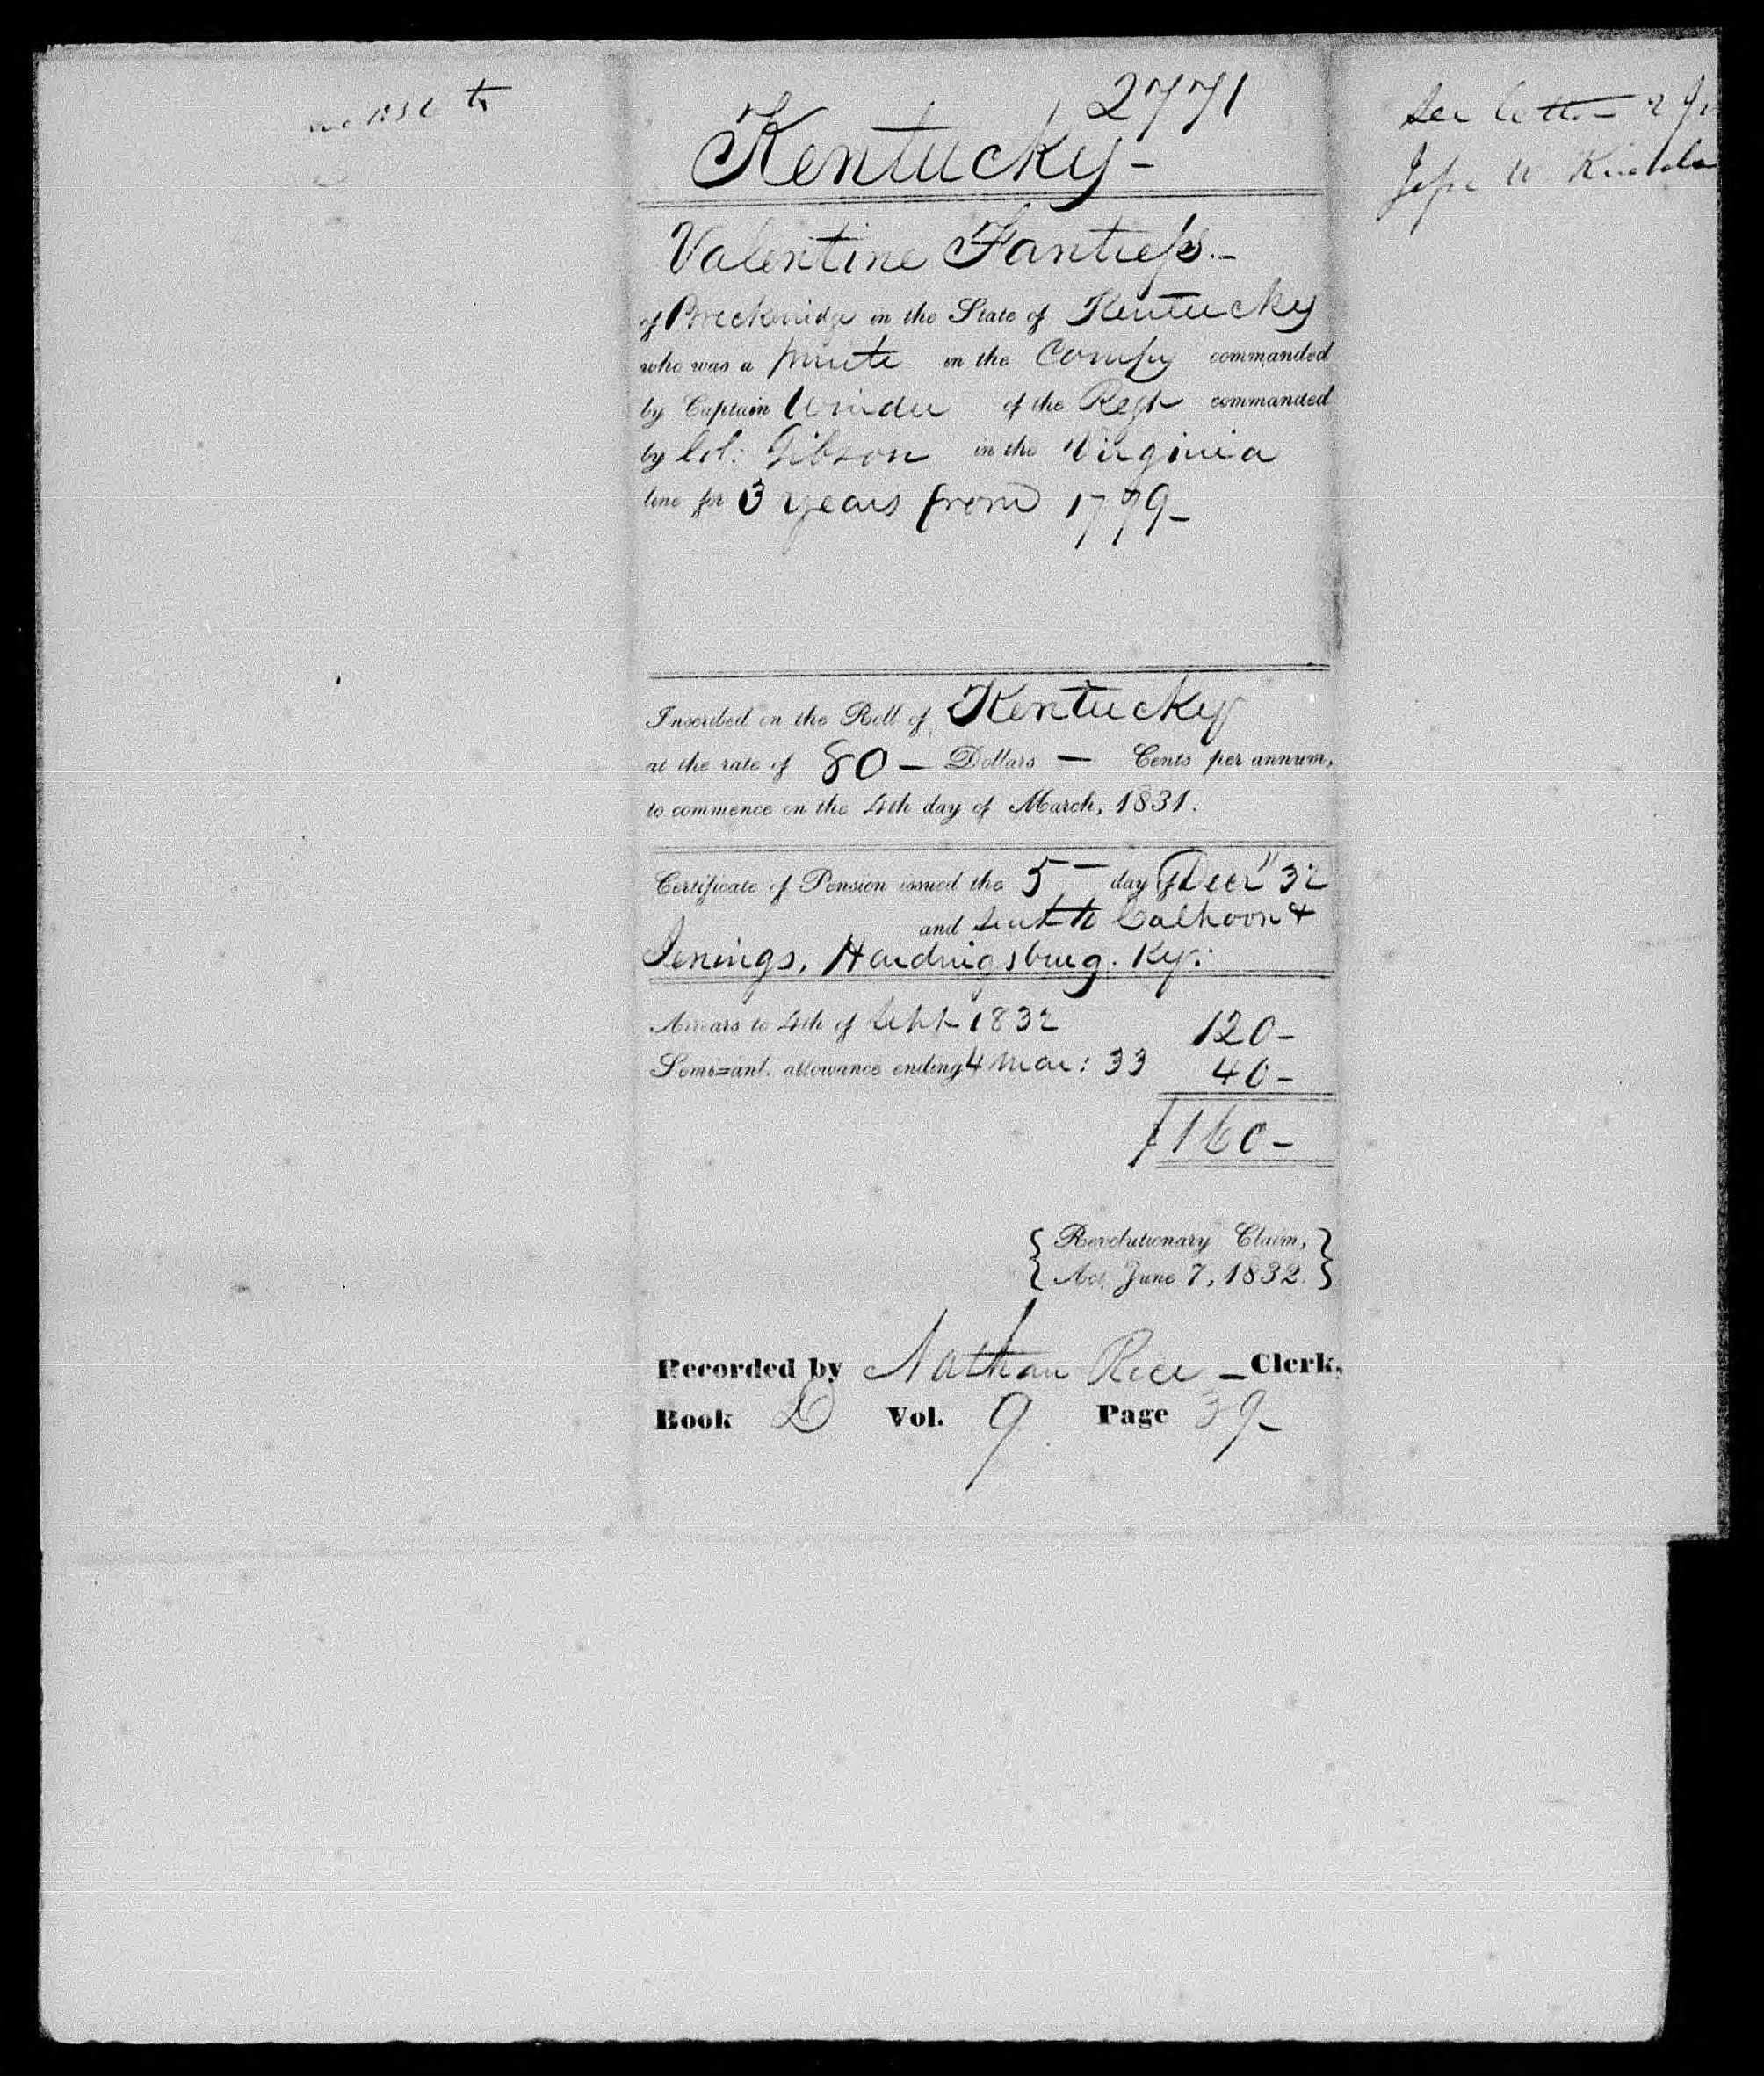 2771
Kentucky-
Valentine Fantress.-
of Breckenridge in the State of Kentucky
who was a private in the Compy commanded
by Captain Winder of the Regt commanded
by Col: Gibson in the Virginia
line for 3 years from 1779-
Inscribed on the Roll of Kentucky
at the rate of 80 - Dollars - Cents per annum,
to commence on the 4th day of March, 1831.
Certificate of Pension issued the 5 - day of Decr" 32
and sent to Calhoon &
Jenings, Hardingsburg. Ky:
Arrears to 4th of Sept 1832 120-
Semi-anl. allowance ending 4 Mar: 33 40-
160-
{ Revolutionary Claim, }
{ Act June 7, 1832. }
Recorded by Nathan Rice - Clerk,
Book D Vol. 9 Page 39-
to
See
Jesse W